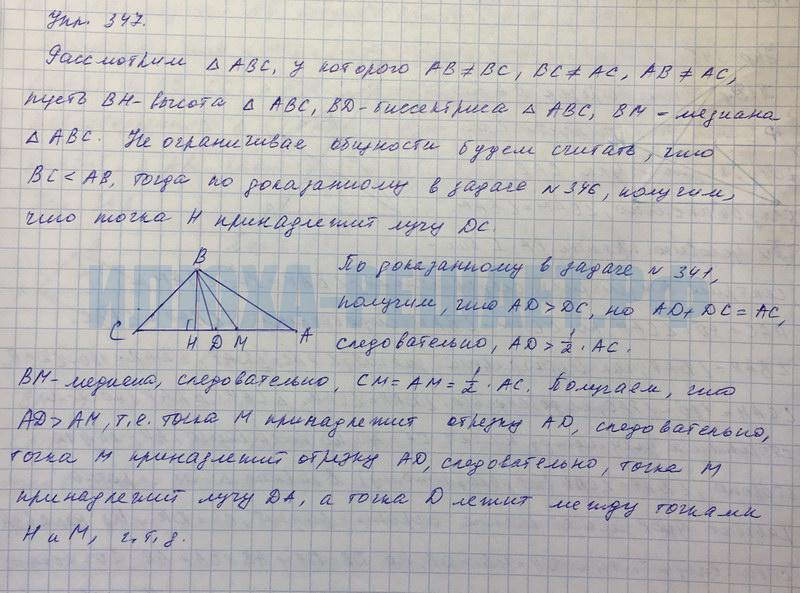 Упр. 347.
Рассмотрим △ ABC, у которого AB ≠ BC, BC ≠ AC, AB ≠ AC,
пусть BH - высота △ ABC, BD - биссектриса △ ABC, BM - медиана
△ ABC. Не ограничивае общности будем считать, что
BC < AB, тогда по доказанному в задаче №346, получим,
что точка H принадлежит лучу DC.
B
C
H D M
A
По доказанному в задаче № 341,
получим, что AD > DC, но AD + DC = AC,
следовательно, AD > 1/2 · AC.
BM - медиана, следовательно, CM = AM = 1/2 · AC. Получаем, что
AD > AM, т.е. точка M принадлежит отрезку AD, следовательно,
точка M принадлежит отрезку AD, следовательно, точка M
принадлежит лучу DA, а точка D лежит между точками
H и M, ч.т.д.